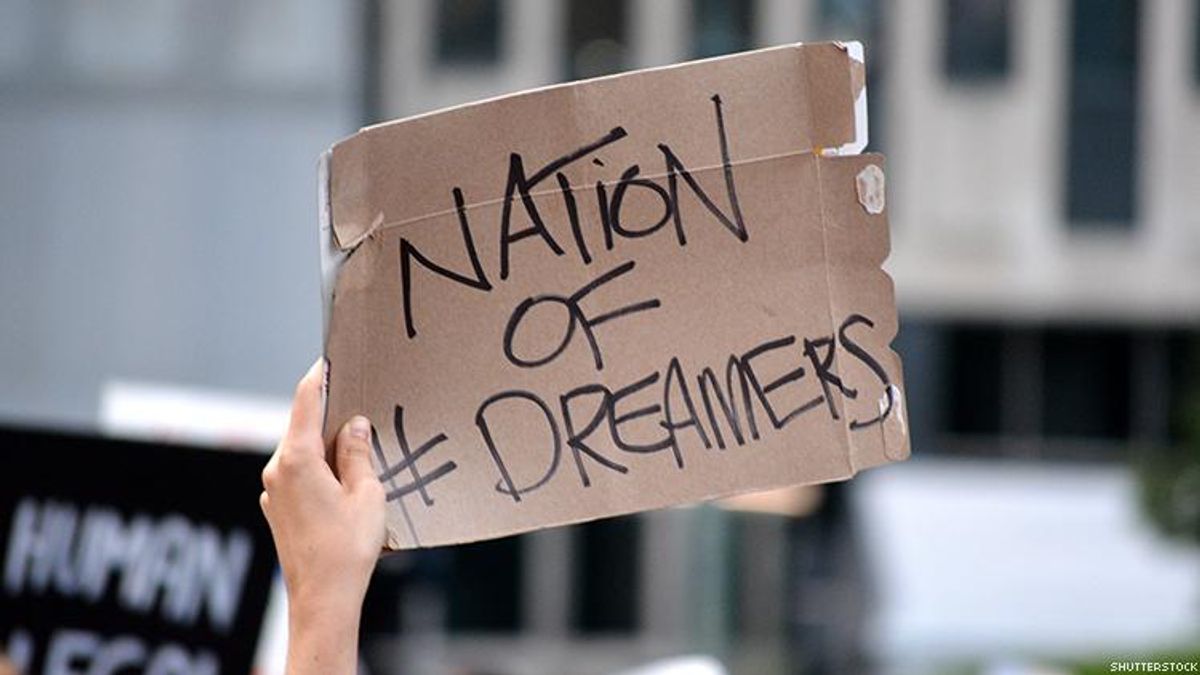 NATION
OF
#DREAMERS
HUMAN
SHUTTERSTOCK